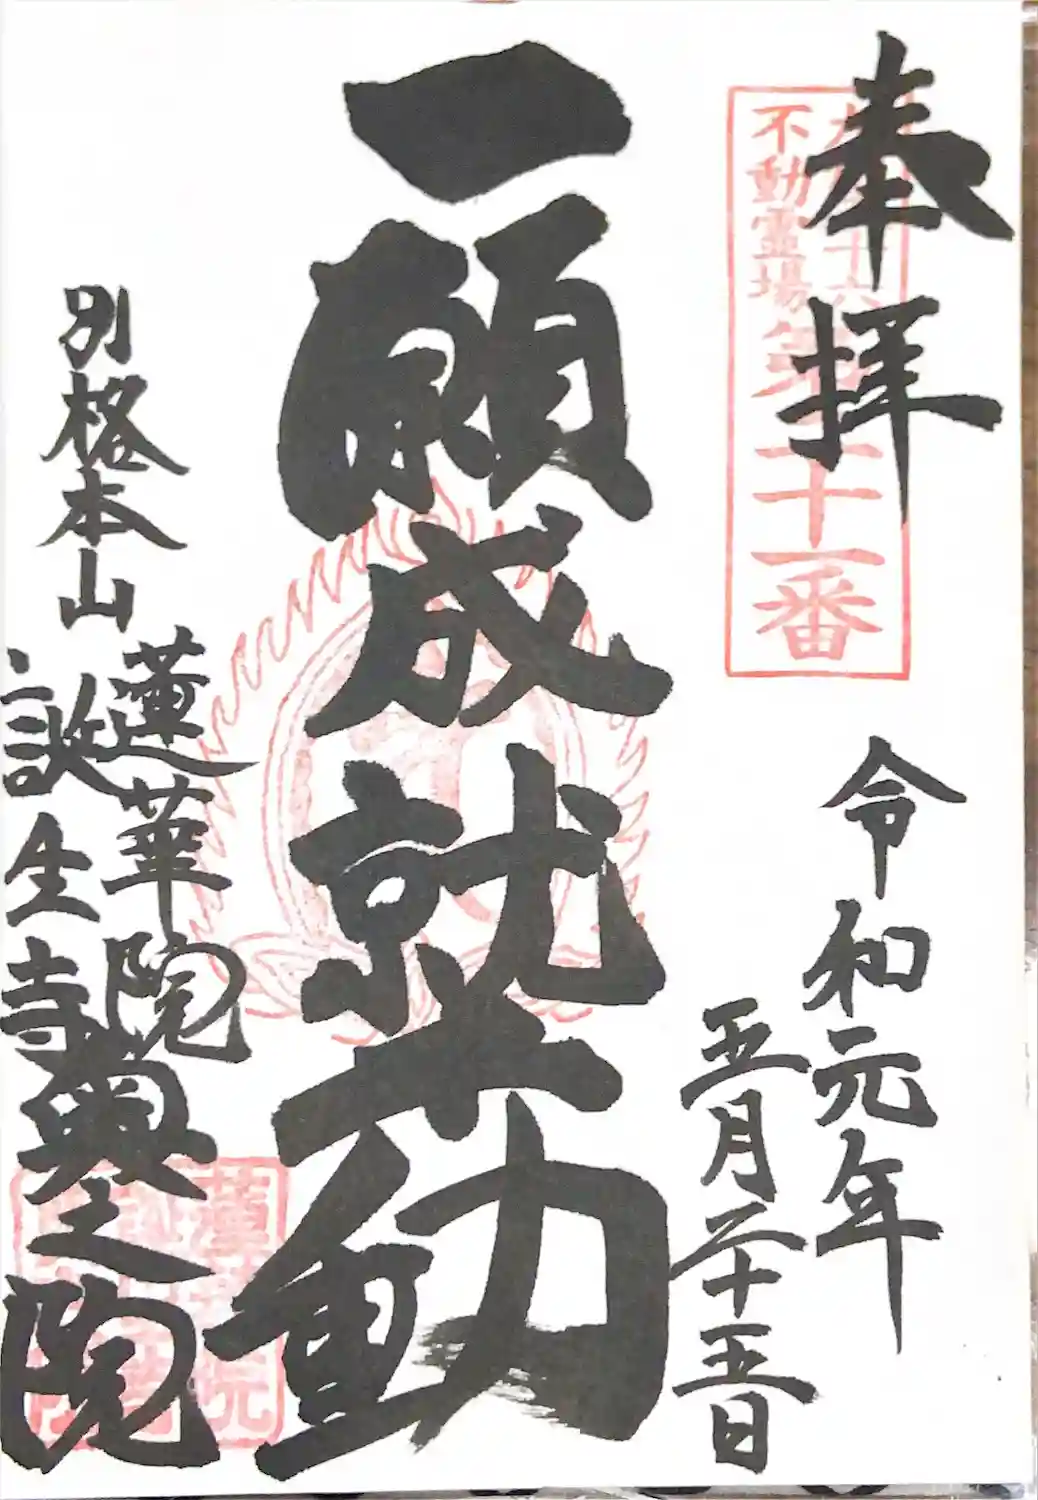 奉拝
九州三十六
不動霊場第二十一番
令和元年
五月二十五日
一願成就不動
別格本山
蓮華院
誕生寺
奥之院